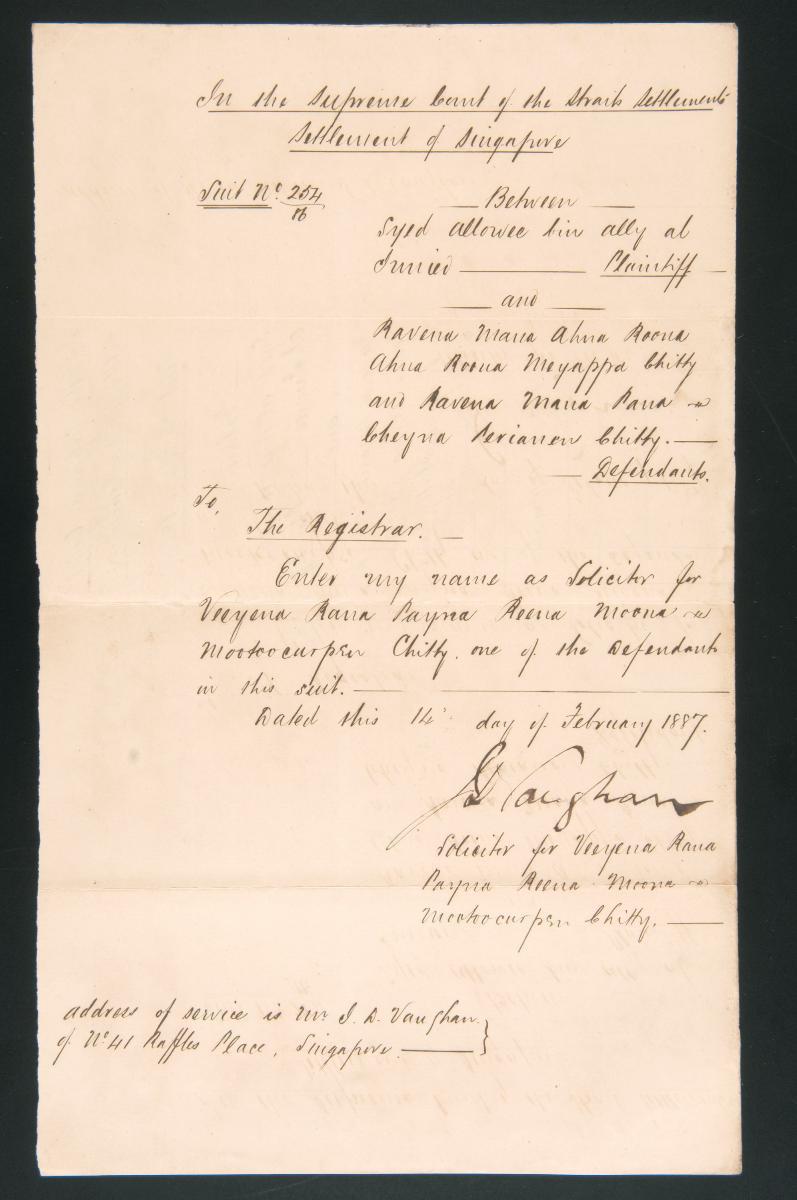 In the Supreme Court of the Straits Settlements
Settlement of Singapore
Suit No. 254
Between
Syed Allowee bin Ally al
Junied Plaintiff
and
Ravena Mana Ahna Roona
Ahna Roona Meyappa Chitty
and Ravena Mana Pana
Cheyna Perianen Chitty.
Defendants.
To,
The Registrar.
Enter my name as Solicitor for
Veeyena Rana Payna Reena Moona
Mootoocurpen Chitty. one of the Defendants
in this suit.
Dated this 14 day of February 1887.
JD Vaughan
Solicitor for Veeyena Rana
Payna Reena Moona
Mootoocurpen Chitty.
Address of service is Mr J. D. Vaughan
of No. 41 Raffles Place, Singapore.